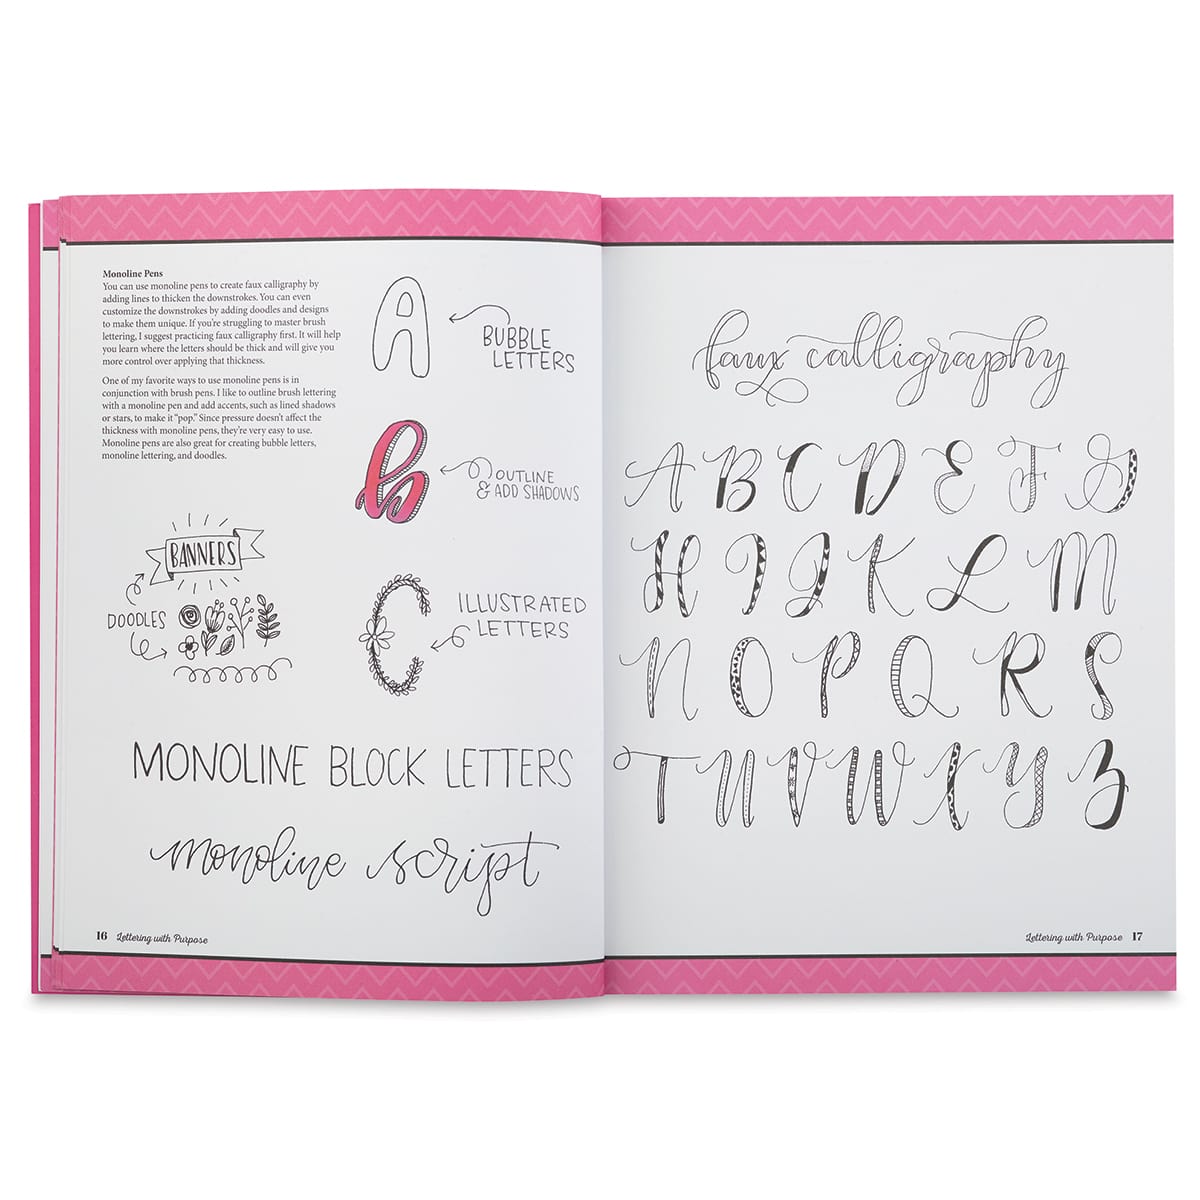 Monoline Pens
You can use monoline pens to create faux calligraphy by
adding lines to thicken the downstrokes. You can even
customize the downstrokes by adding doodles and designs
to make them unique. If you're struggling to master brush
lettering, I suggest practicing faux calligraphy first. It will help
you learn where the letters should be thick and will give you
more control over applying that thickness.
One of my favorite ways to use monoline pens is in
conjunction with brush pens. I like to outline brush lettering
with a monoline pen and add accents, such as lined shadows
or stars, to make it "pop." Since pressure doesn't affect the
thickness with monoline pens, they're very easy to use.
Monoline pens are also great for creating bubble letters,
monoline lettering, and doodles.
A
BUBBLE
LETTERS
b
OUTLINE
& ADD SHADOWS
BANNERS
DOODLES
C
ILLUSTRATED
LETTERS
MONOLINE BLOCK LETTERS
monoline script
16 Lettering with Purpose
faux calligraphy
A B C D E F G
H I J K L M
N O P Q R S
T U V W X Y Z
Lettering with Purpose 17